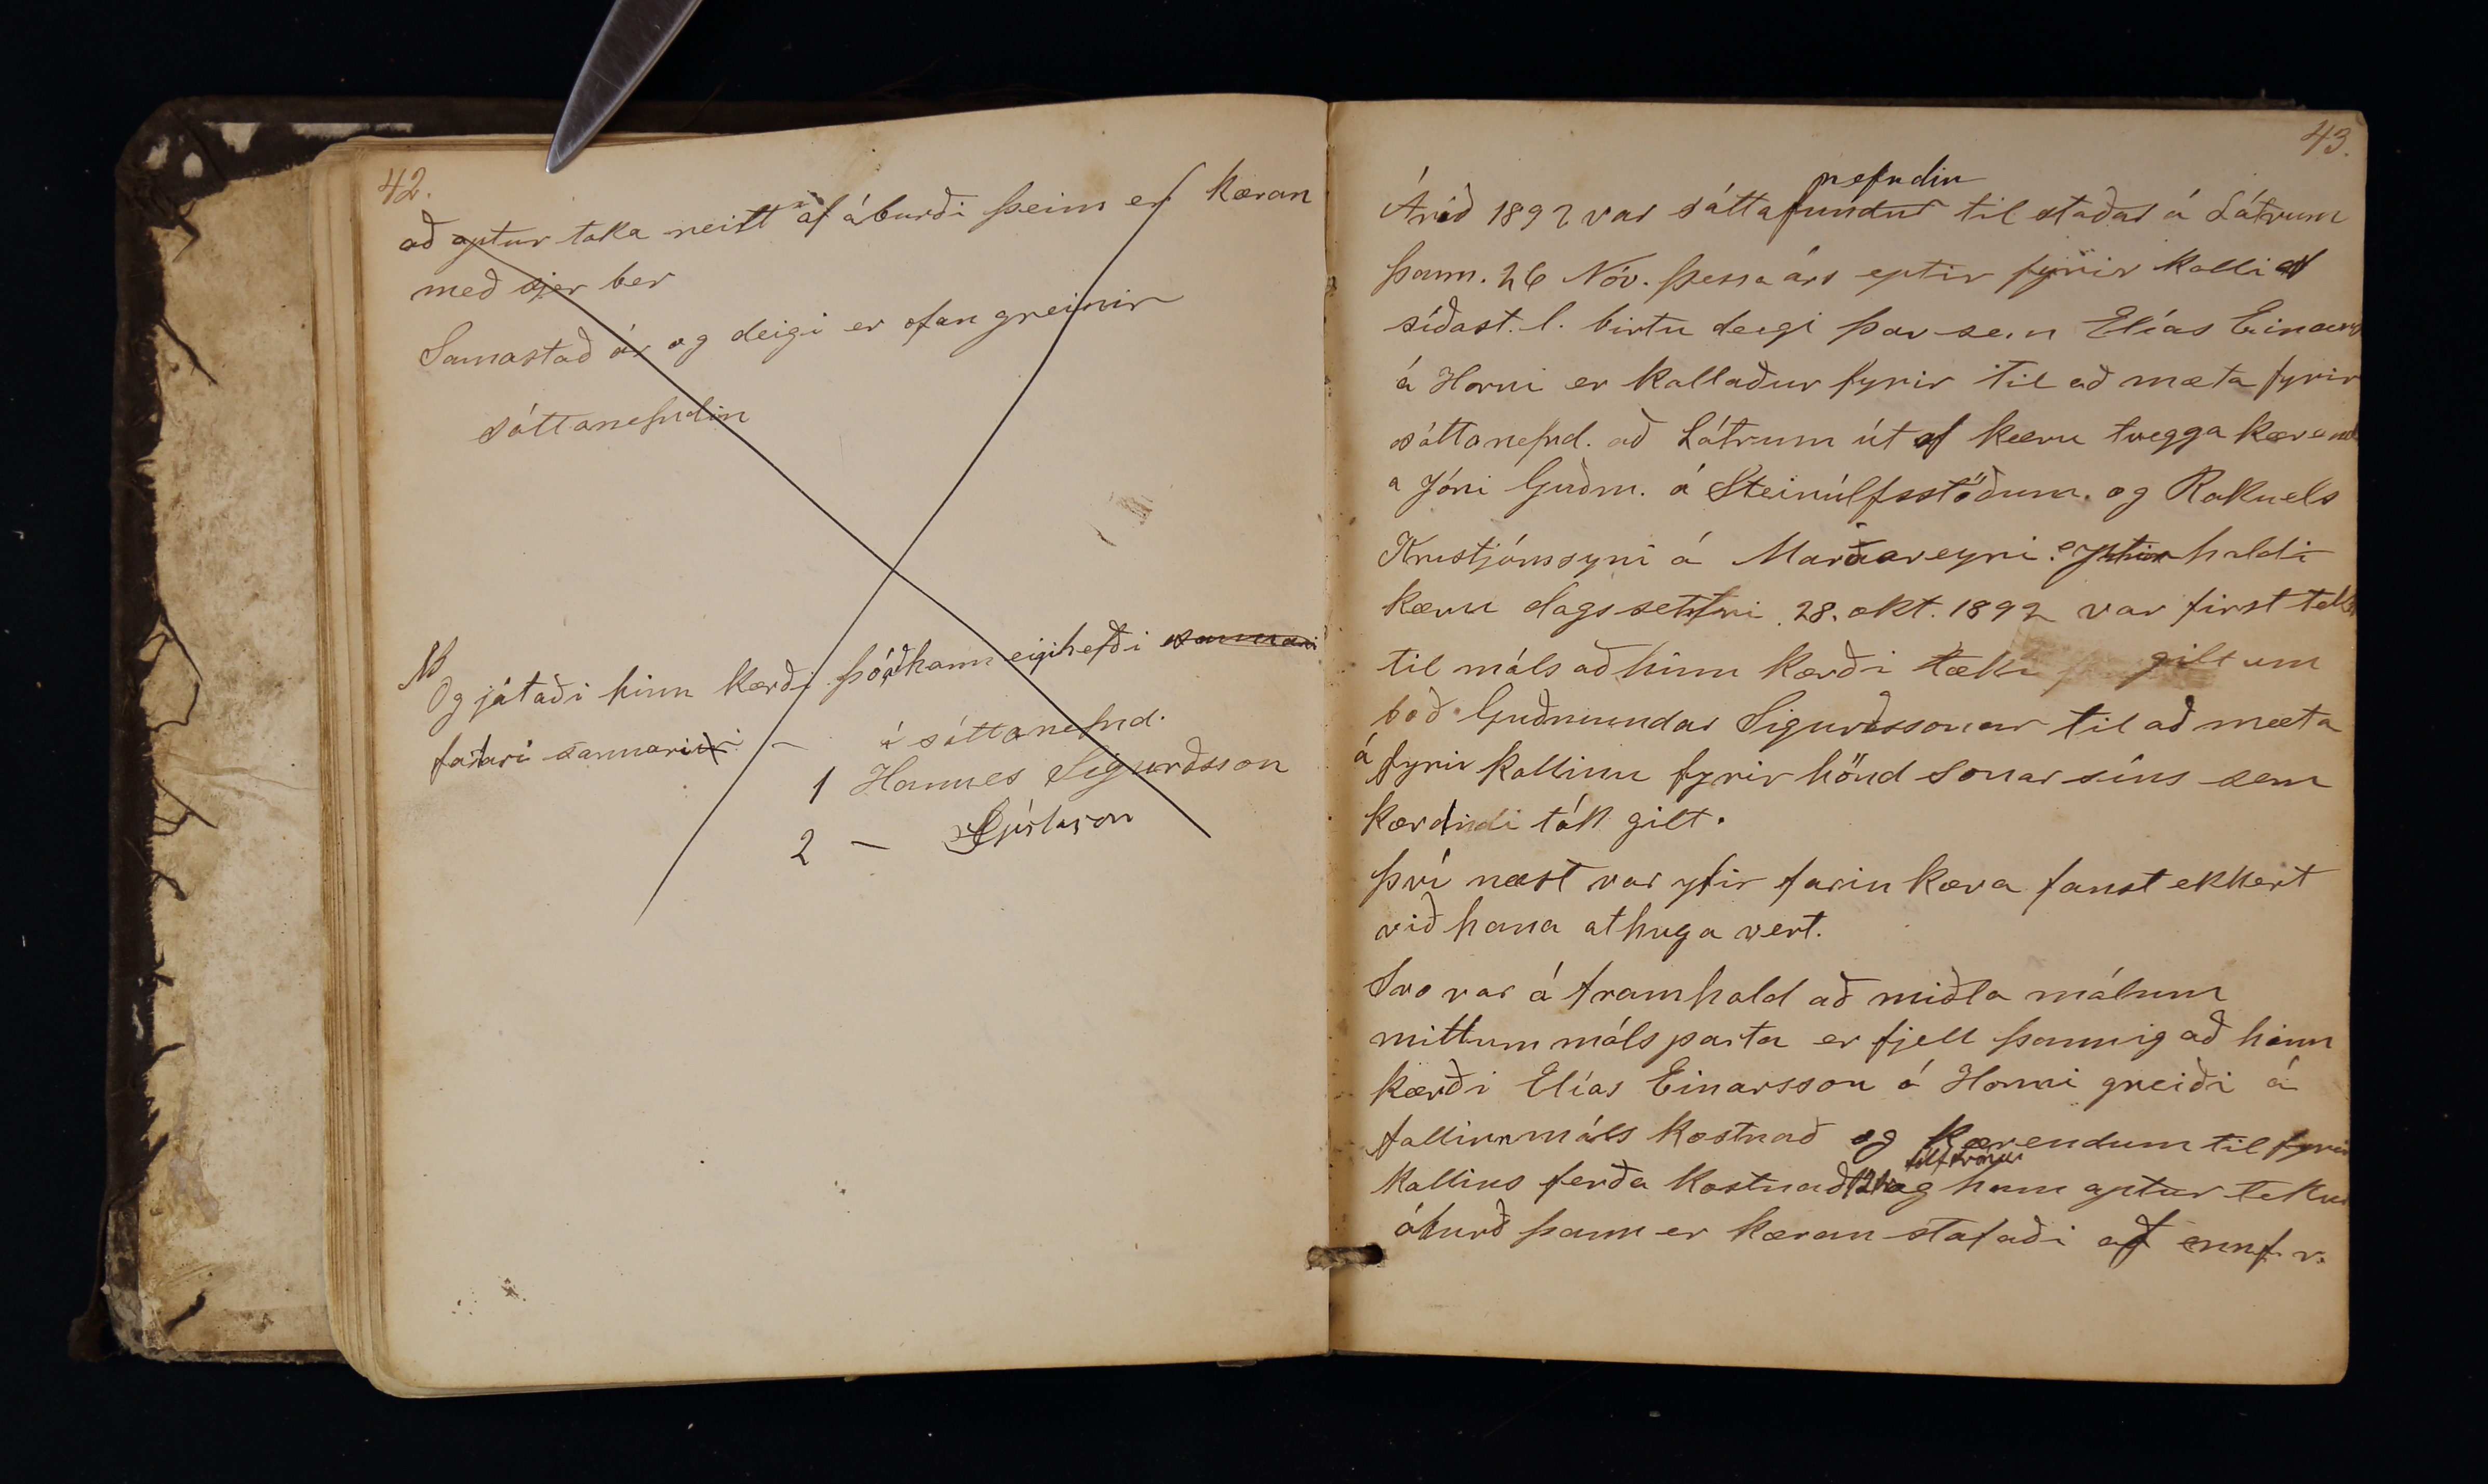 42.
að aptur taka neitt af áburði þeim er kæran
með sjer ber
Samastað ár og deigi er ofan greinir
sáttanefndin
NB
Og játaði hinn kærði þó að hann eigi hefði sannari
farari sannari
í sáttanefnd.
1 Hannes Sigurðsson
2 — Gíslason
43.
nefndin
Árið 1892 var sáttafundur til staðar á Látrum
þann. 26 Nóv. þessa árs eptir fyrir kalli af
síðast. l. birtu deigi þar sem Elías Einars
á Horni er kallaður fyrir til að mæta fyrir
sáttanefnd. að Látrum út af kæru tvegga kærend
a Jóni Guðm. á Steinúlfsstöðum. og Rakuels
Kristjánssyni á Marðareyri. haldi
kæru dagsettri 28. okt. 1892 var first tek
til máls að hinn kærði tæki gilt um
boð Guðmundar Sigurðssonar til að mæta
á fyrir kallinu fyrir hönd sonar síns sem
kærandi tók gilt.
því næst var yfir farin kæra fanst ekkert
við hana athuga vert.
Svo var á framhald að miðla málum
millum málsparta er fjell þannig að hinn
kærði Elías Einarsson á Horni greiði á
fallinn máls kostnað og kærendum til fyrir
kallins ferða kostnað 12 kr og hann aptur tekur
áburð þann er kæran stafaði af ennf. v.